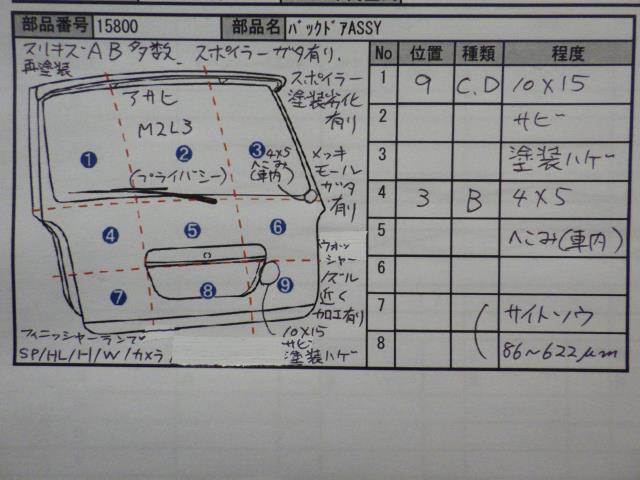 部品番号 15800 部品名 バックドアASSY
スリキズAB多数、スポイラーガタ有り、
再塗装
スポイラー
塗装劣化
有り
アサヒ
M2L3
(プライバシー)
1
2
3
4×5
ヘこみ
(車内)
メッキ
モール
ガタ
有り
4
5
6
ウォッシャー
ノズル
近く
加工有り
7
8
9
10×15
サビ
塗装ハゲ
フィニッシャーランプ
SP/HL/H/W/カメラ
No 位置 種類 程度
1 9 C,D 10×15
2 サビ
3 塗装ハゲ
4 3 B 4×5
5 ヘこみ(車内)
6
7 サイトソウ
8 86~622μm